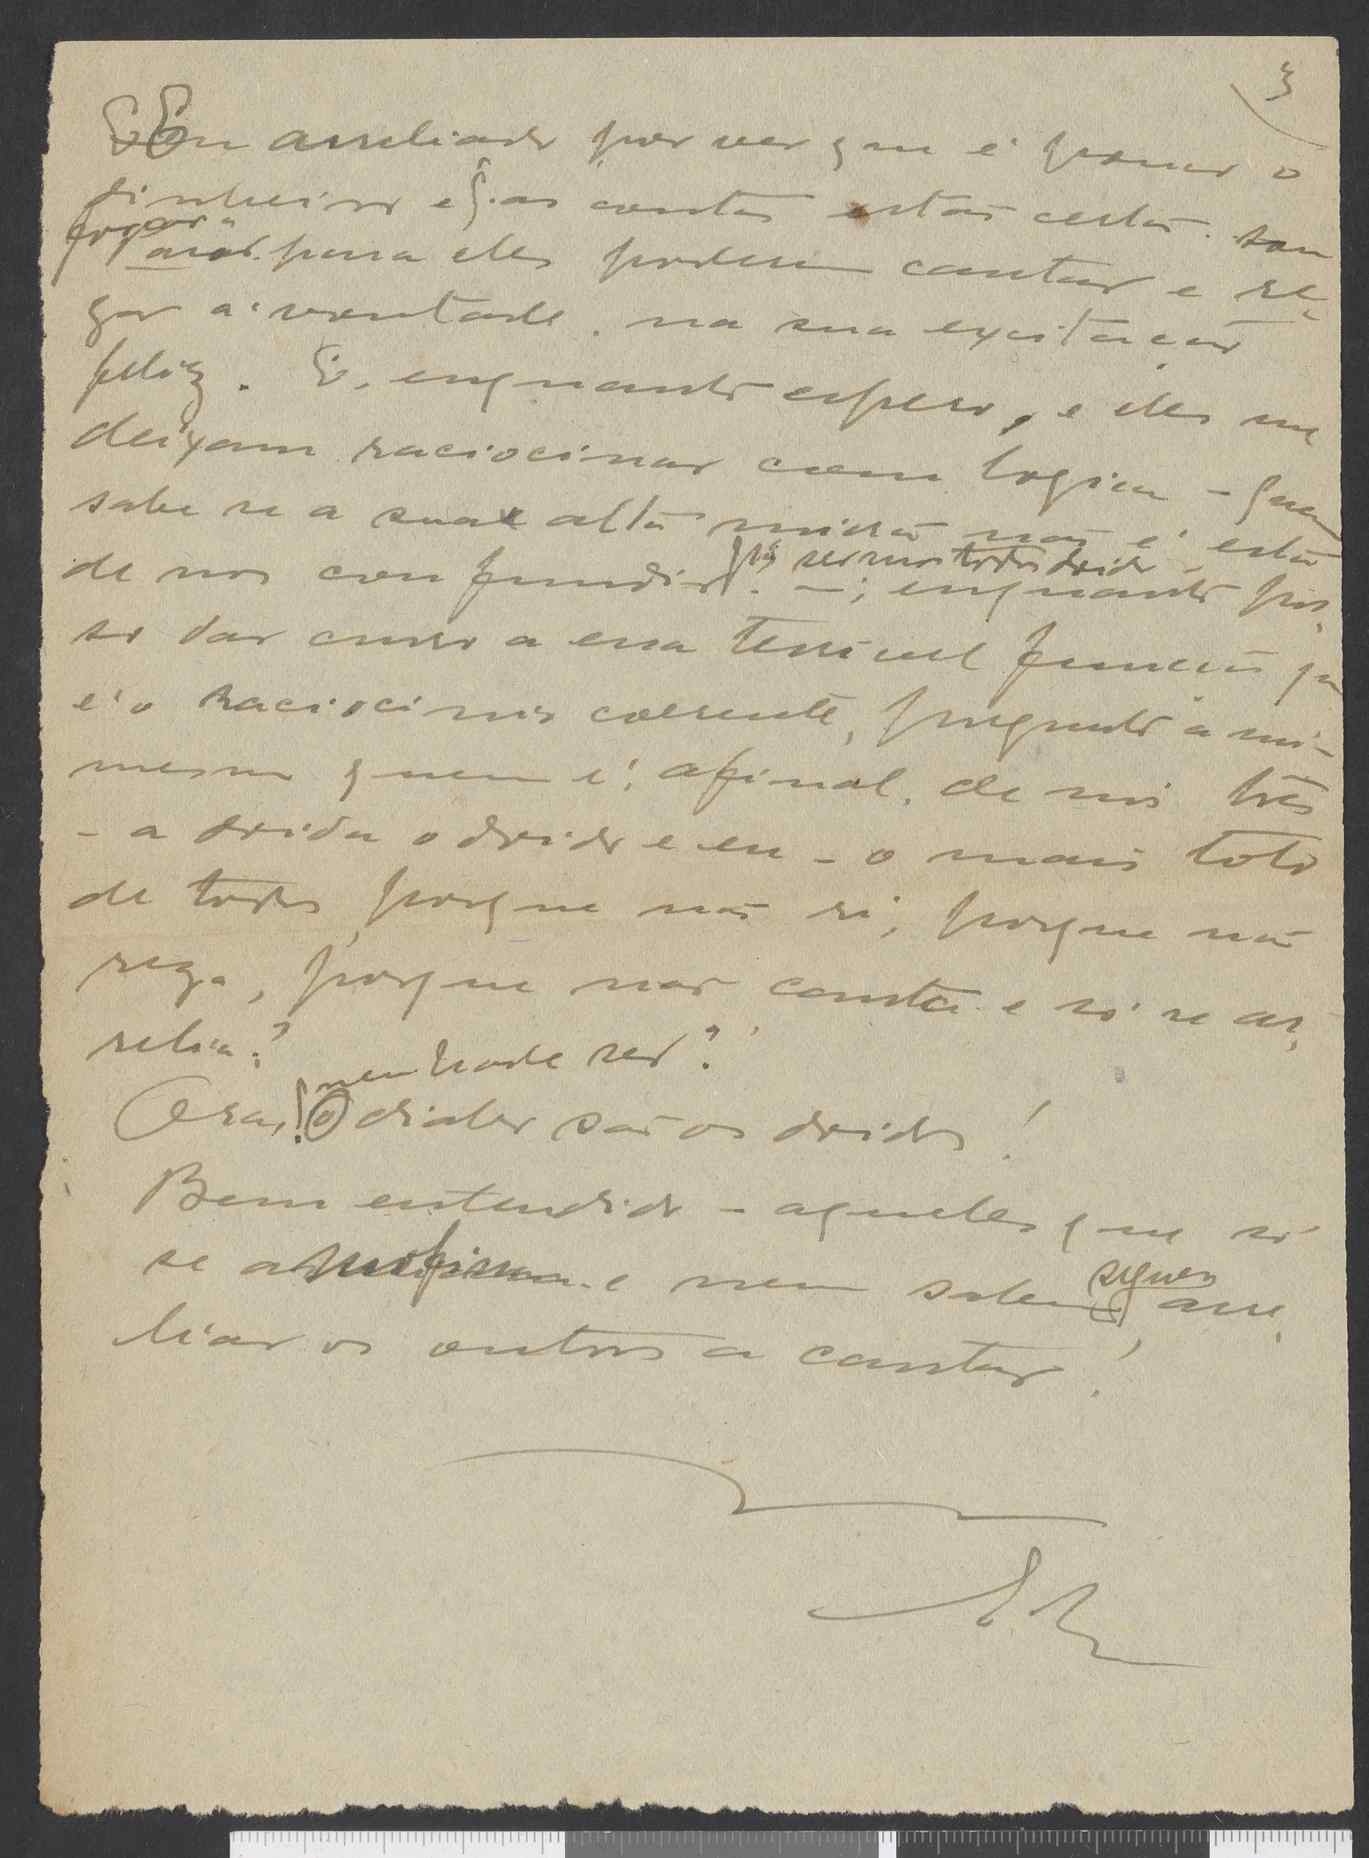 3
Eu arreliado por ver que é pouco o
dinheiro e as contas estão certas
para eles poderem cantar e re-
zar á vontade, na sua excitação
feliz. E, enquanto espero, e eles me
deixam raciocinar com logica - quem
sabe se a sua alta missão não é esta
de nos confundir
sermos todos doidos
-; enquanto pos-
so dar curso a essa terrivel função que
é o raciocinio coerente, pregunto a mi-
mesmo quem é, afinal, de nós três
- a doida o doido e eu - o mais tolo
de todos, porque não ri, porque não
reza, porque não canta e só se ar-
relia?
nem pode ser?
Ora, o diabo são os doidos!
Bem entendido - aqueles que só
se e nem sabem sequer arre-
liar os outros a cantar!